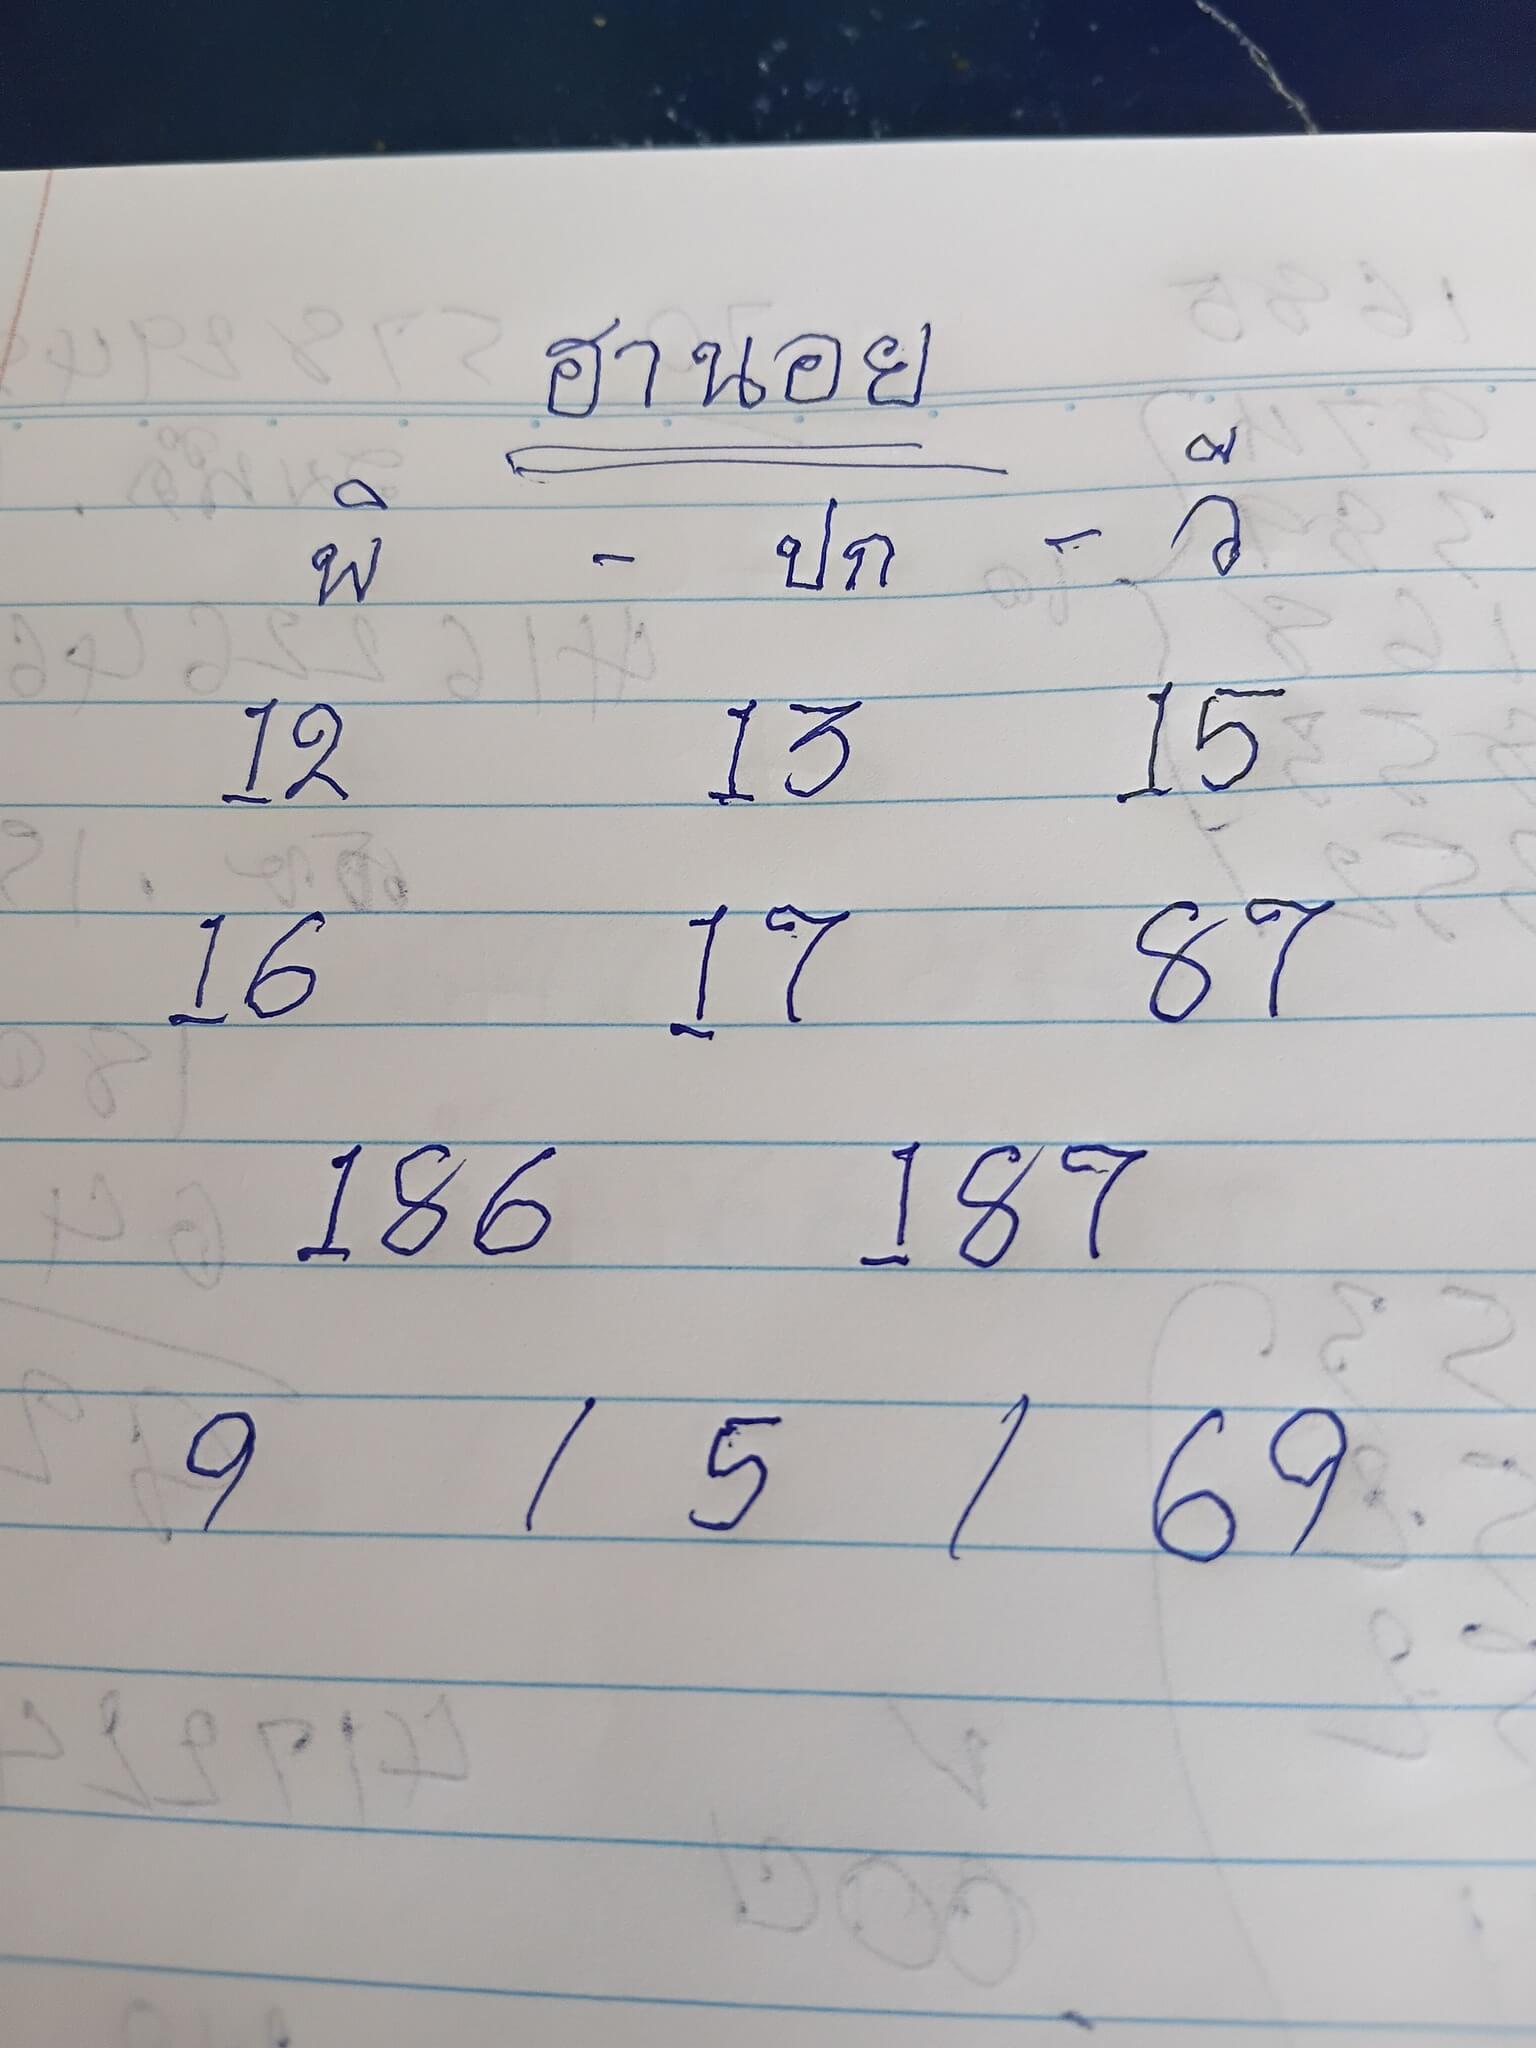 ฮานอย
พิ - ปก - วี
12 13 15
16 17 87
186 187
9 / 5 / 69